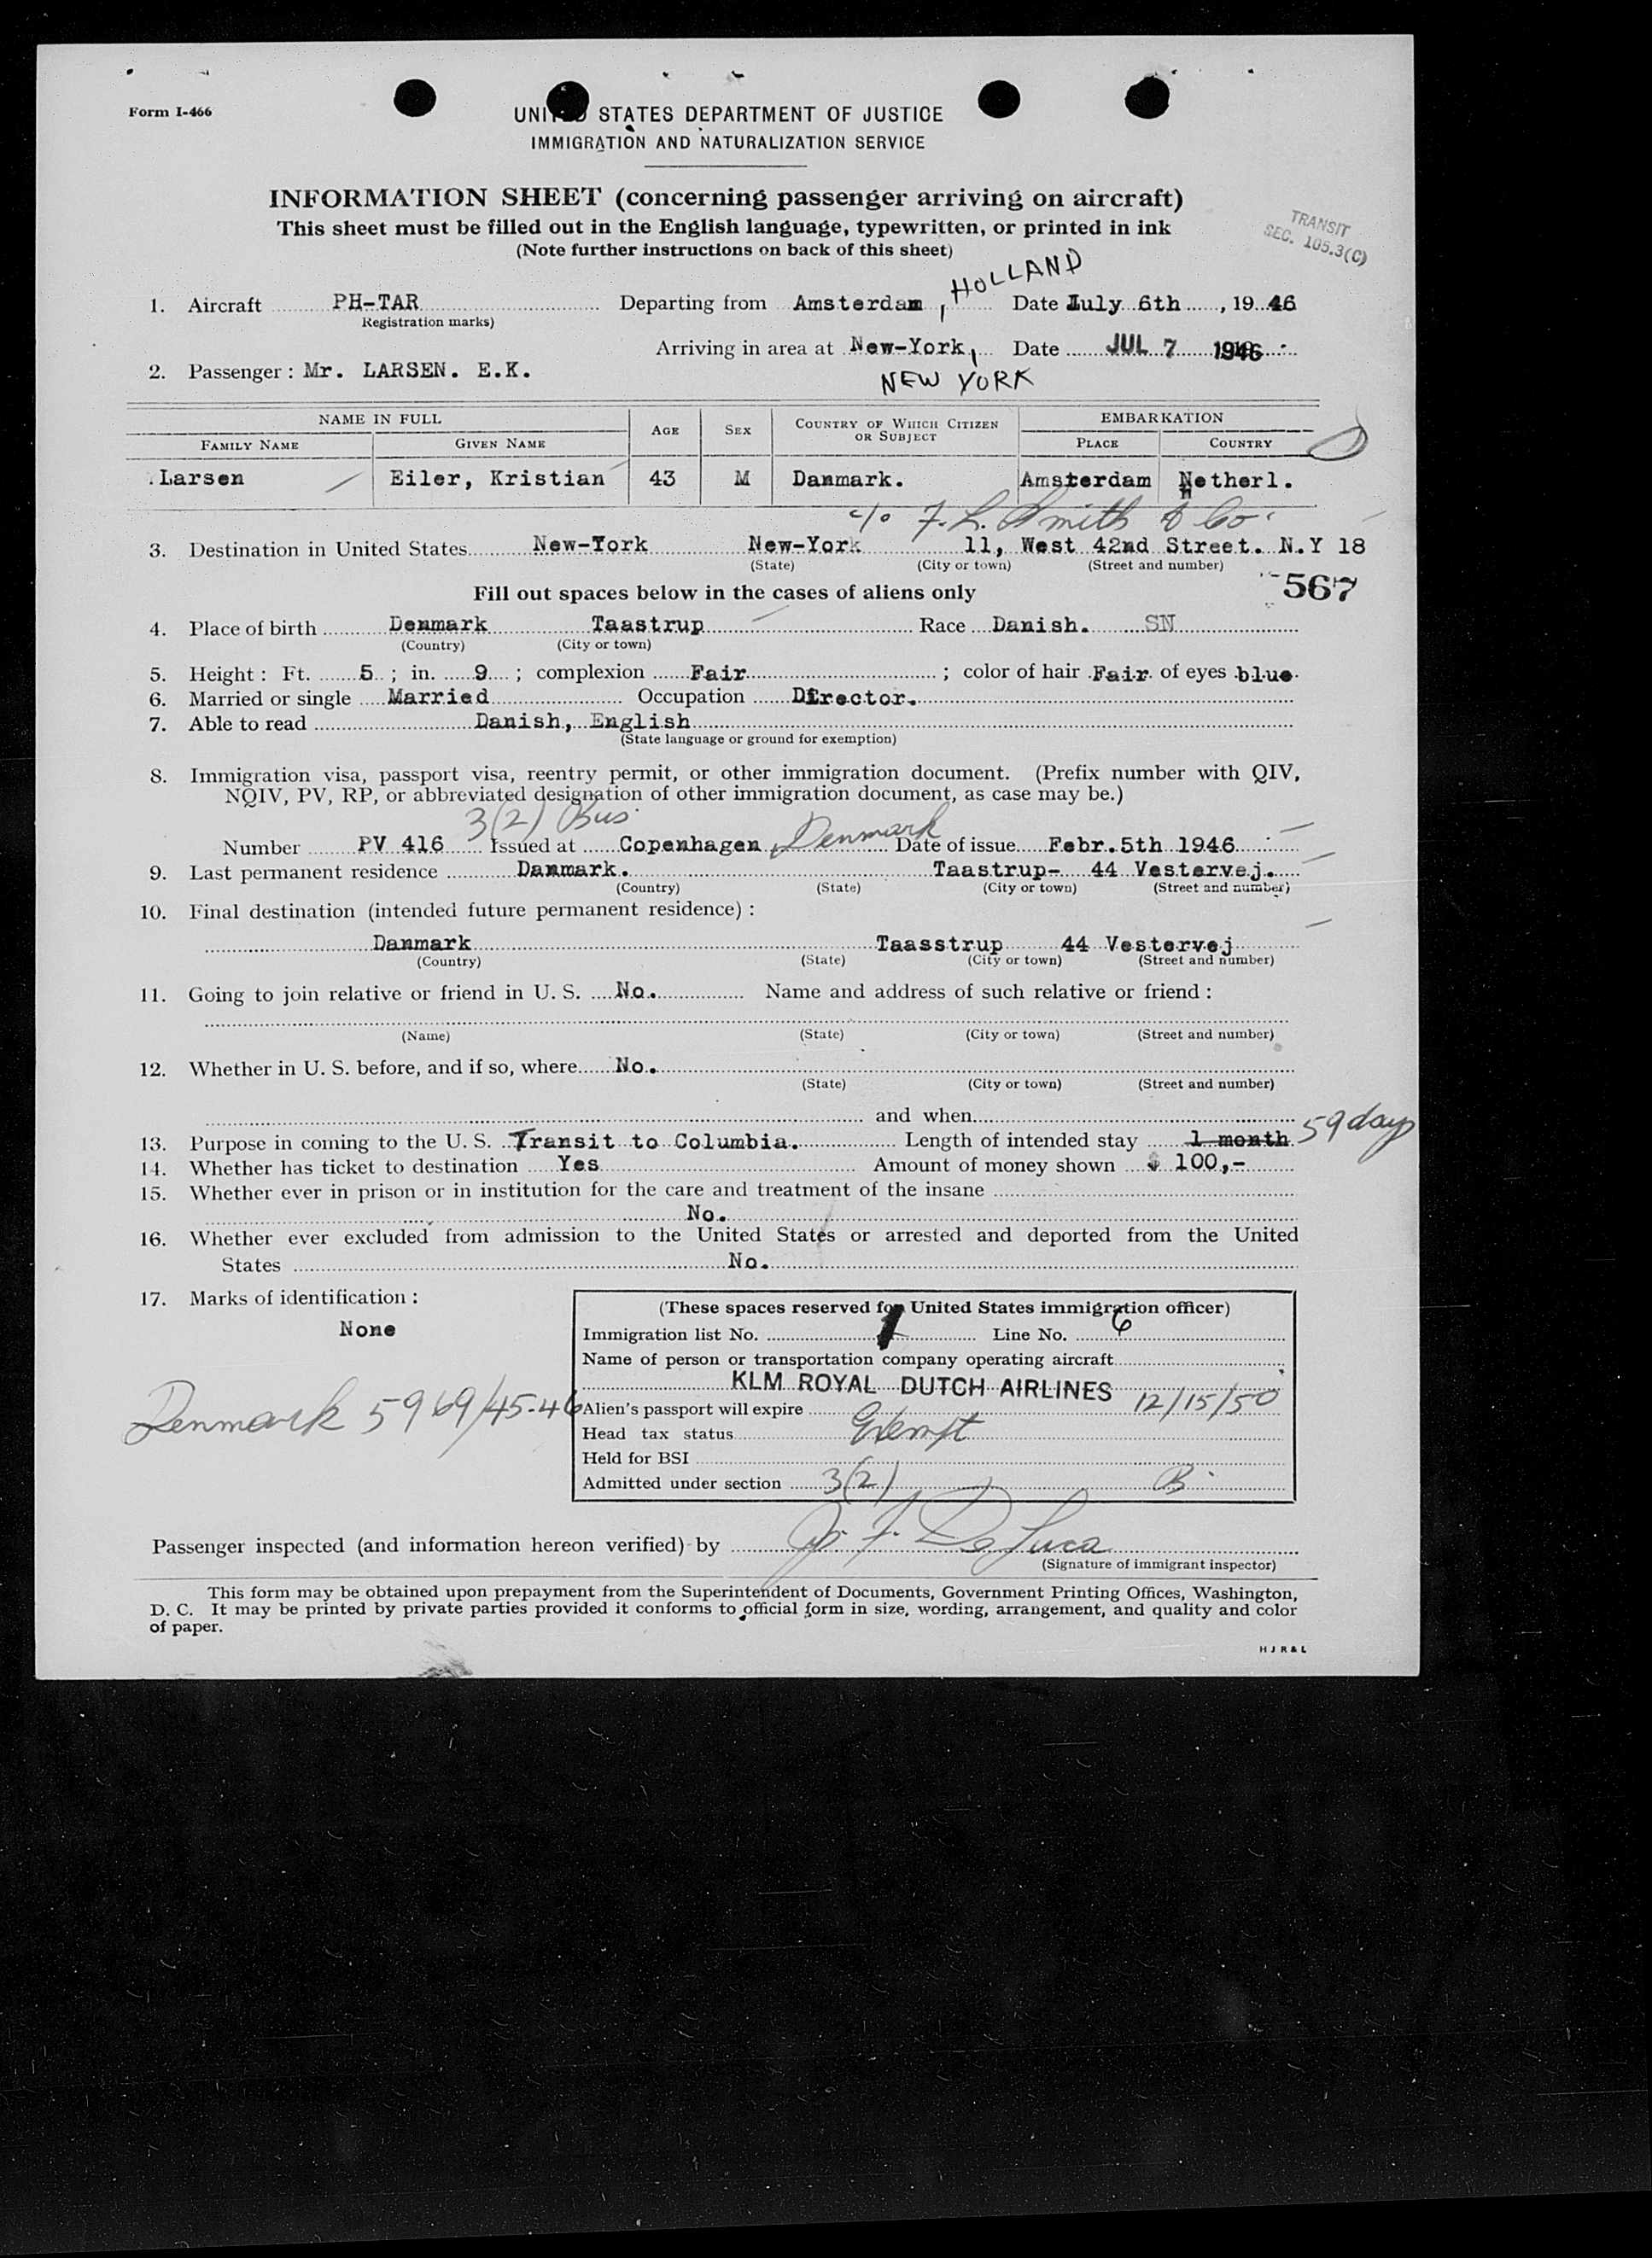 Form I-466
UNITED STATES DEPARTMENT OF JUSTICE
IMMIGRATION AND NATURALIZATION SERVICE
INFORMATION SHEET (concerning passenger arriving on aircraft)
This sheet must be filled out in the English language, typewritten, or printed in ink
(Note further instructions on back of this sheet)
TRANSIT
SEC. 105.3(C)
HOLLAND
1. Aircraft PH-TAR Departing from Amsterdam, Date July 6th, 19 46
Registration marks)
Arriving in area at New-York, Date JUL 7 1946
2. Passenger: Mr. LARSEN. E.K. NEW YORK
NAME IN FULL AGE SEX COUNTRY OF WHICH CITIZEN OR SUBJECT EMBARKATION
FAMILY NAME GIVEN NAME PLACE COUNTRY
Larsen Eiler, Kristian 43 M Danmark. Amsterdam Netherl.
c/o F. L. Smith & Co.
3. Destination in United States New-York New-York 11, West 42nd Street. N.Y 18
(State) (City or town) (Street and number)
Fill out spaces below in the cases of aliens only 567
4. Place of birth Denmark Taastrup Race Danish. SN
(Country) (City or town)
5. Height: Ft. 5; in. 9; complexion Fair; color of hair Fair. of eyes blue.
6. Married or single Married Occupation Director.
7. Able to read Danish, English
(State language or ground for exemption)
8. Immigration visa, passport visa, reentry permit, or other immigration document. (Prefix number with QIV,
NQIV, PV, RP, or abbreviated designation of other immigration document, as case may be.)
3(2) Bus.
Number PV 416 Issued at Copenhagen, Denmark Date of issue Febr. 5th 1946
9. Last permanent residence Danmark. Taastrup- 44 Vestervej.
(Country) (State) (City or town) (Street and number)
10. Final destination (intended future permanent residence):
Danmark Taasstrup 44 Vestervej
(Country) (State) (City or town) (Street and number)
11. Going to join relative or friend in U. S. No. Name and address of such relative or friend:
(Name) (State) (City or town) (Street and number)
12. Whether in U. S. before, and if so, where No.
(State) (City or town) (Street and number)
and when
13. Purpose in coming to the U. S. Transit to Columbia. Length of intended stay 1 month 59 days
14. Whether has ticket to destination Yes Amount of money shown $ 100,-
15. Whether ever in prison or in institution for the care and treatment of the insane
No.
16. Whether ever excluded from admission to the United States or arrested and deported from the United
States No.
17. Marks of identification:
None
Denmark 5969/45-46
(These spaces reserved for United States immigration officer)
Immigration list No. 1 Line No. 6
Name of person or transportation company operating aircraft
KLM ROYAL DUTCH AIRLINES
Alien's passport will expire 12/15/50
Head tax status Exempt
Held for BSI
Admitted under section 3(2) B.
Passenger inspected (and information hereon verified) by J. F. DeLuca
(Signature of immigrant inspector)
This form may be obtained upon prepayment from the Superintendent of Documents, Government Printing Offices, Washington,
D. C. It may be printed by private parties provided it conforms to official form in size, wording, arrangement, and quality and color
of paper.
H J R & L